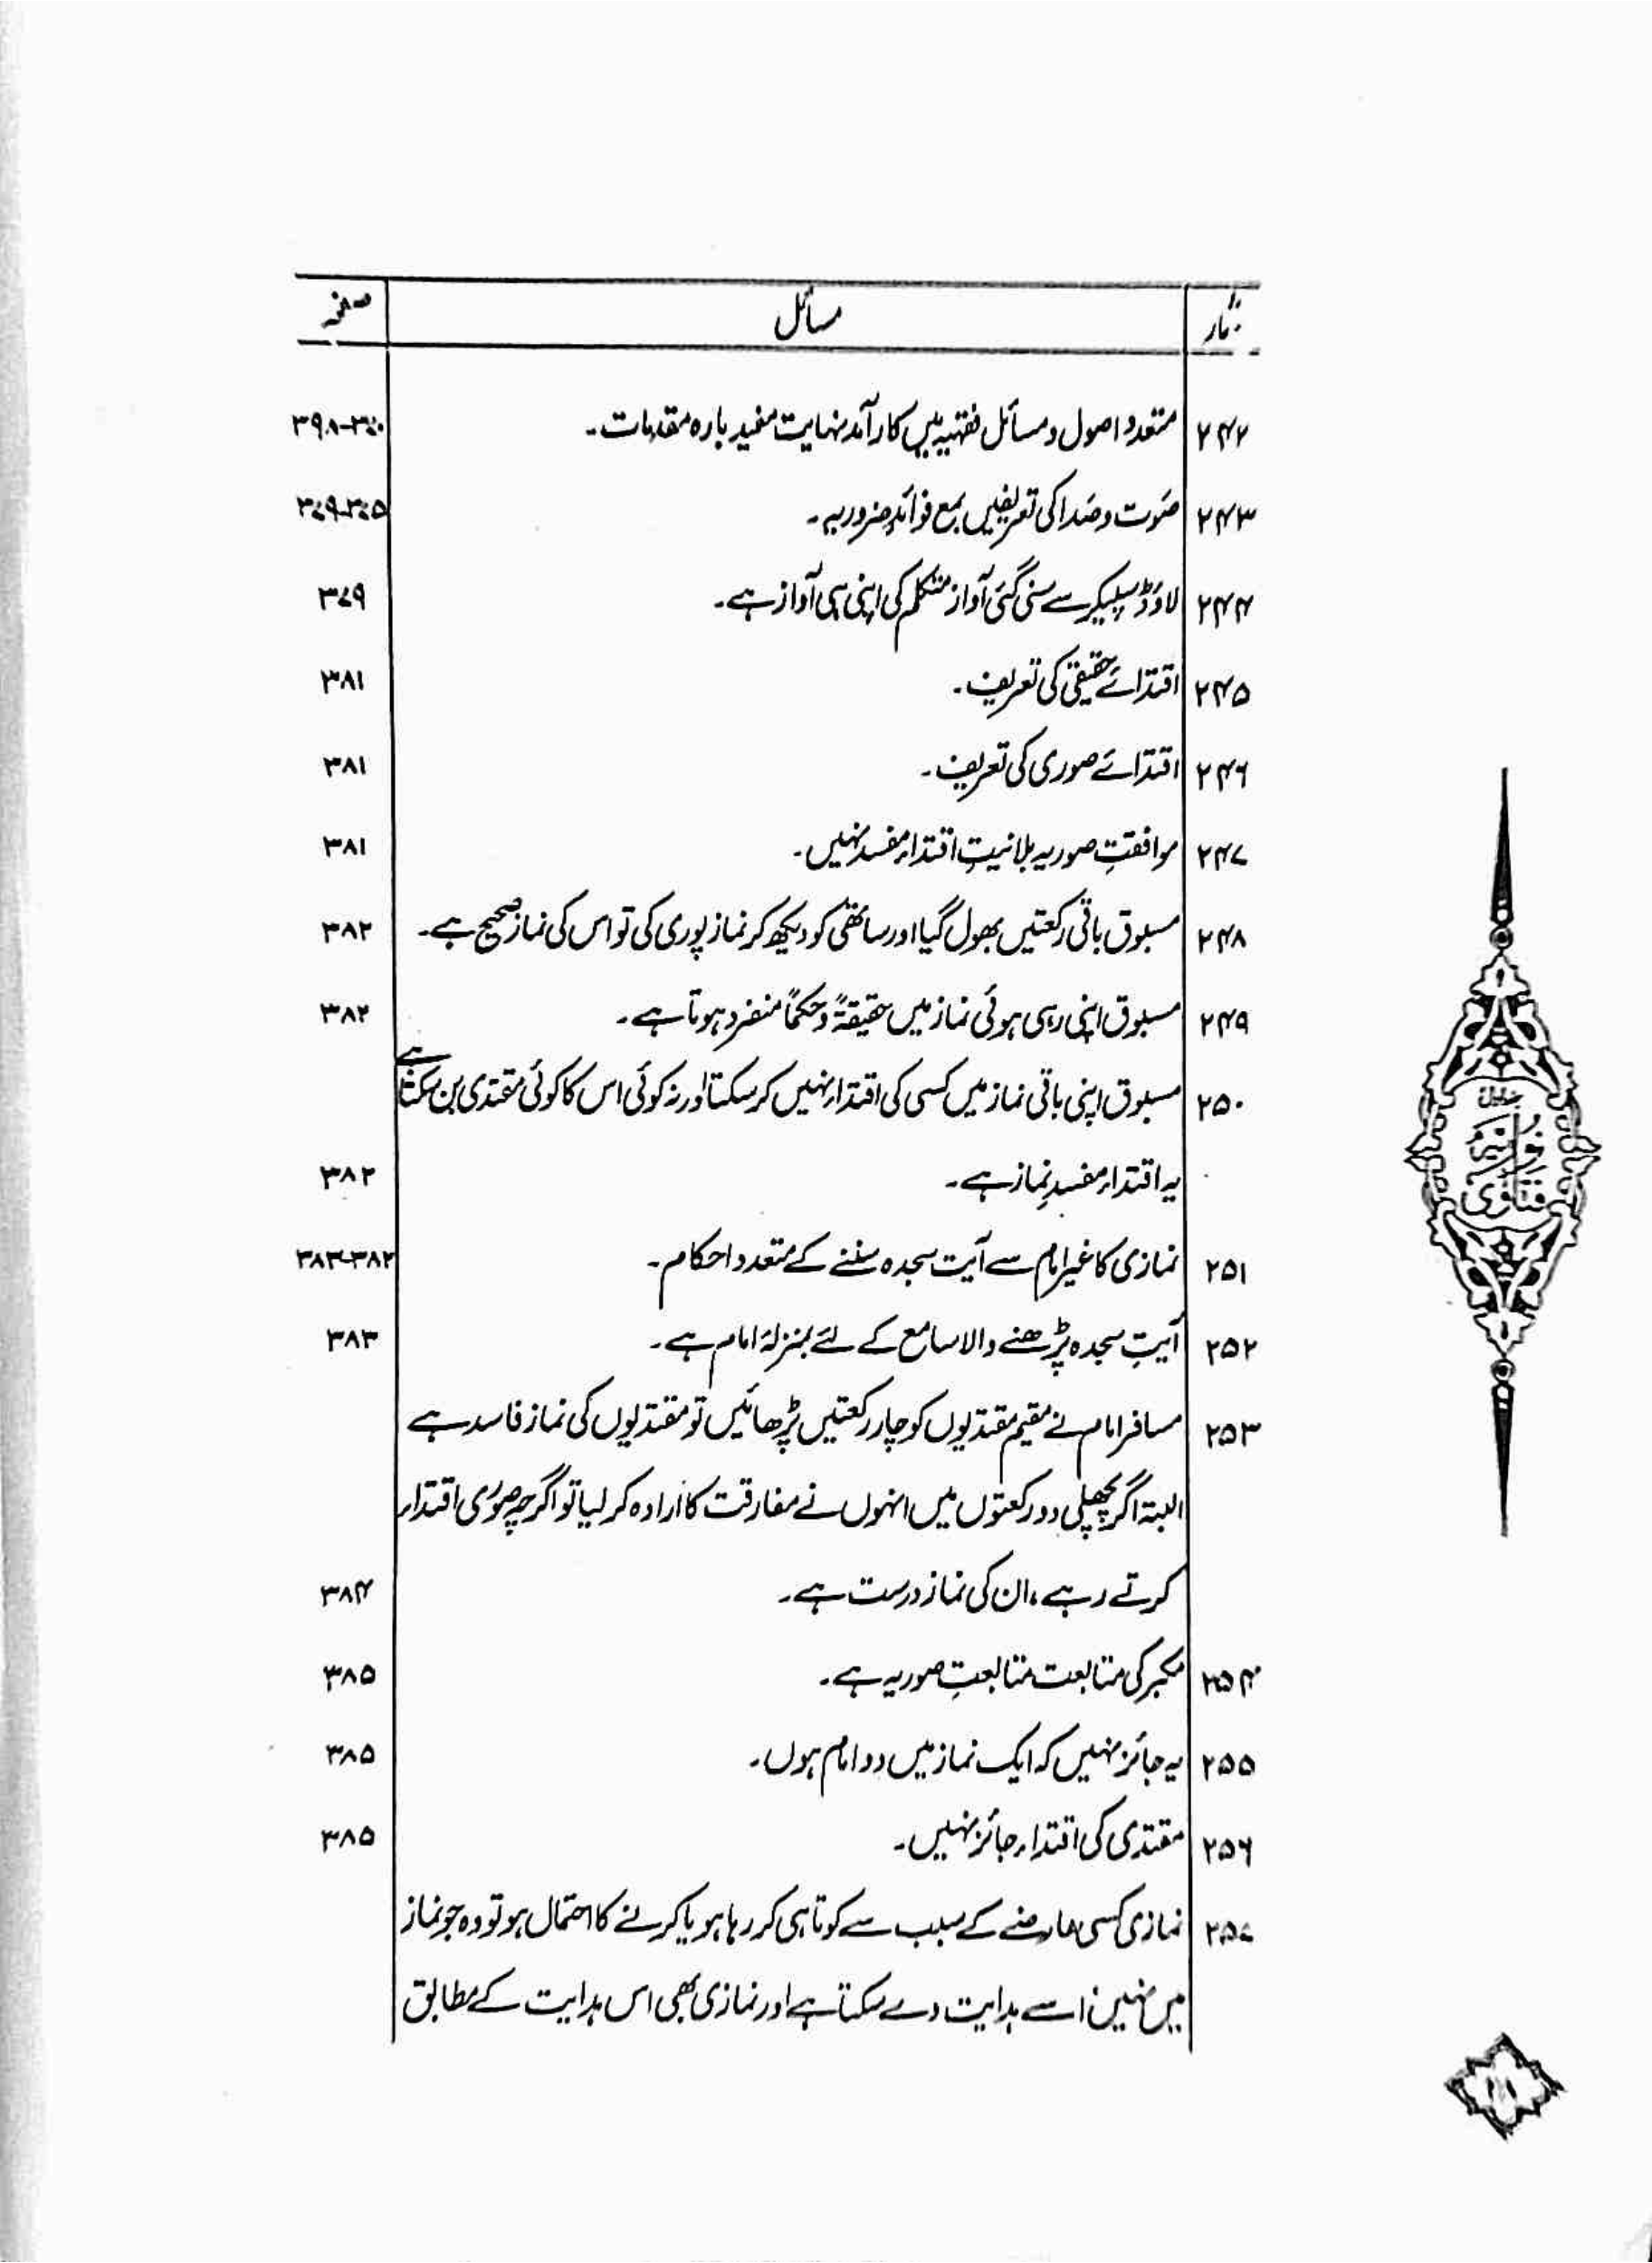 شمار مسائل صفحہ
۲۴۲ متعدد اصول و مسائل فقہیہ میں کارآمد نہایت مفید بارہ مقدمات۔ ۳۷۰-۳۹۸
۲۴۳ صَوت و صَدا کی تعریفیں بمع فوائدِ ضروریہ۔ ۳۷۵-۳۷۹
۲۴۴ لاؤڈ سپیکر سے سنی گئی آواز متکلم کی اپنی ہی آواز ہے۔ ۳۷۹
۲۴۵ اقتدائے حقیقی کی تعریف۔ ۳۸۱
۲۴۶ اقتدائے صوری کی تعریف۔ ۳۸۱
۲۴۷ موافقتِ صوریہ بلا نیتِ اقتداء مفسد نہیں۔ ۳۸۱
۲۴۸ مسبوق باقی رکعتیں بھول گیا اور ساتھی کو دیکھ کر نماز پوری کی تو اس کی نماز صحیح ہے۔ ۳۸۲
۲۴۹ مسبوق اپنی رہی ہوئی نماز میں حقیقۃً و حکماً منفرد ہوتا ہے۔ ۳۸۲
۲۵۰ مسبوق اپنی باقی نماز میں کسی کی اقتداء نہیں کر سکتا اور نہ کوئی اس کا کوئی مقتدی بن سکتا ہے
یہ اقتداء مفسدِ نماز ہے۔ ۳۸۲
۲۵۱ نمازی کا غیر امام سے آیت سجدہ سننے کے متعدد احکام۔ ۳۸۲-۳۸۳
۲۵۲ آیتِ سجدہ پڑھنے والا سامع کے لئے بمنزلۂ امام ہے۔ ۳۸۳
۲۵۳ مسافر امام نے مقیم مقتدیوں کو چار رکعتیں پڑھائیں تو مقتدیوں کی نماز فاسد ہے
البتہ اگر پچھلی دو رکعتوں میں انہوں نے مفارقت کا ارادہ کر لیا تو اگرچہ صوری اقتداء
کرتے رہے، ان کی نماز درست ہے۔ ۳۸۴
۲۵۴ مکبر کی متابعت متابعتِ صوریہ ہے۔ ۳۸۵
۲۵۵ یہ جائز نہیں کہ ایک نماز میں دو امام ہوں۔ ۳۸۵
۲۵۶ مقتدی کی اقتداء جائز نہیں۔ ۳۸۵
۲۵۷ نمازی کسی عارضے کے سبب سے کوتاہی کر رہا ہو یا کرنے کا احتمال ہو تو وہ جو نماز
میں نہیں اسے ہدایت دے سکتا ہے اور نمازی بھی اس ہدایت کے مطابق
فتاویٰ نوریہ